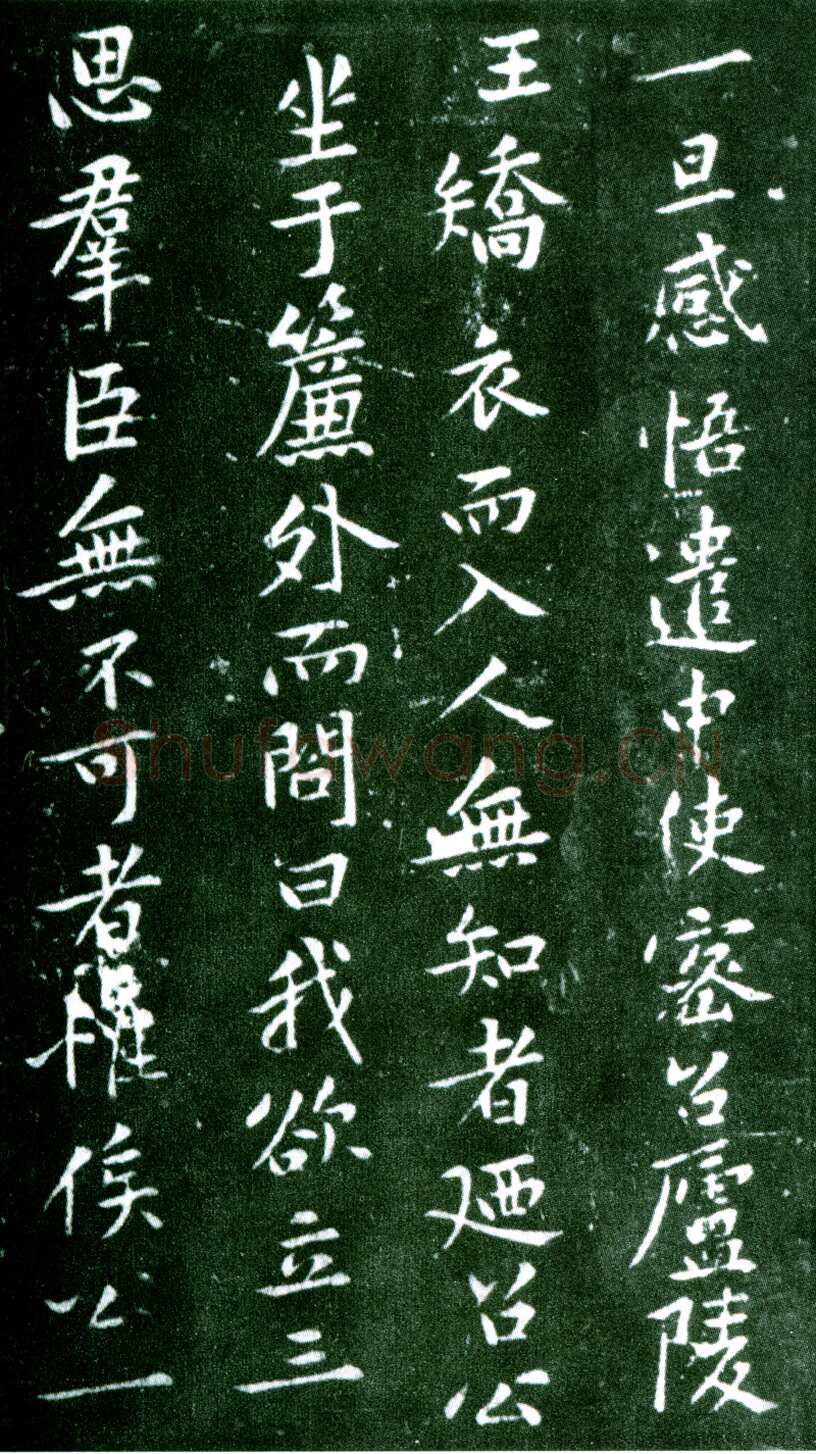 一旦感悟遣中使密召廬陵
王矯衣而入人無知者廼召公
坐于簾外而問曰我欲立三
思羣臣無不可者俟公一
Shufawang.CN